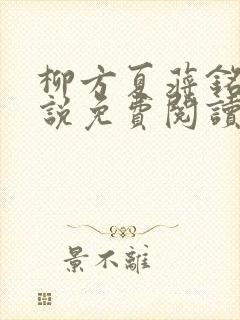 柳方夏蔣銘
說免費閱讀
景不離